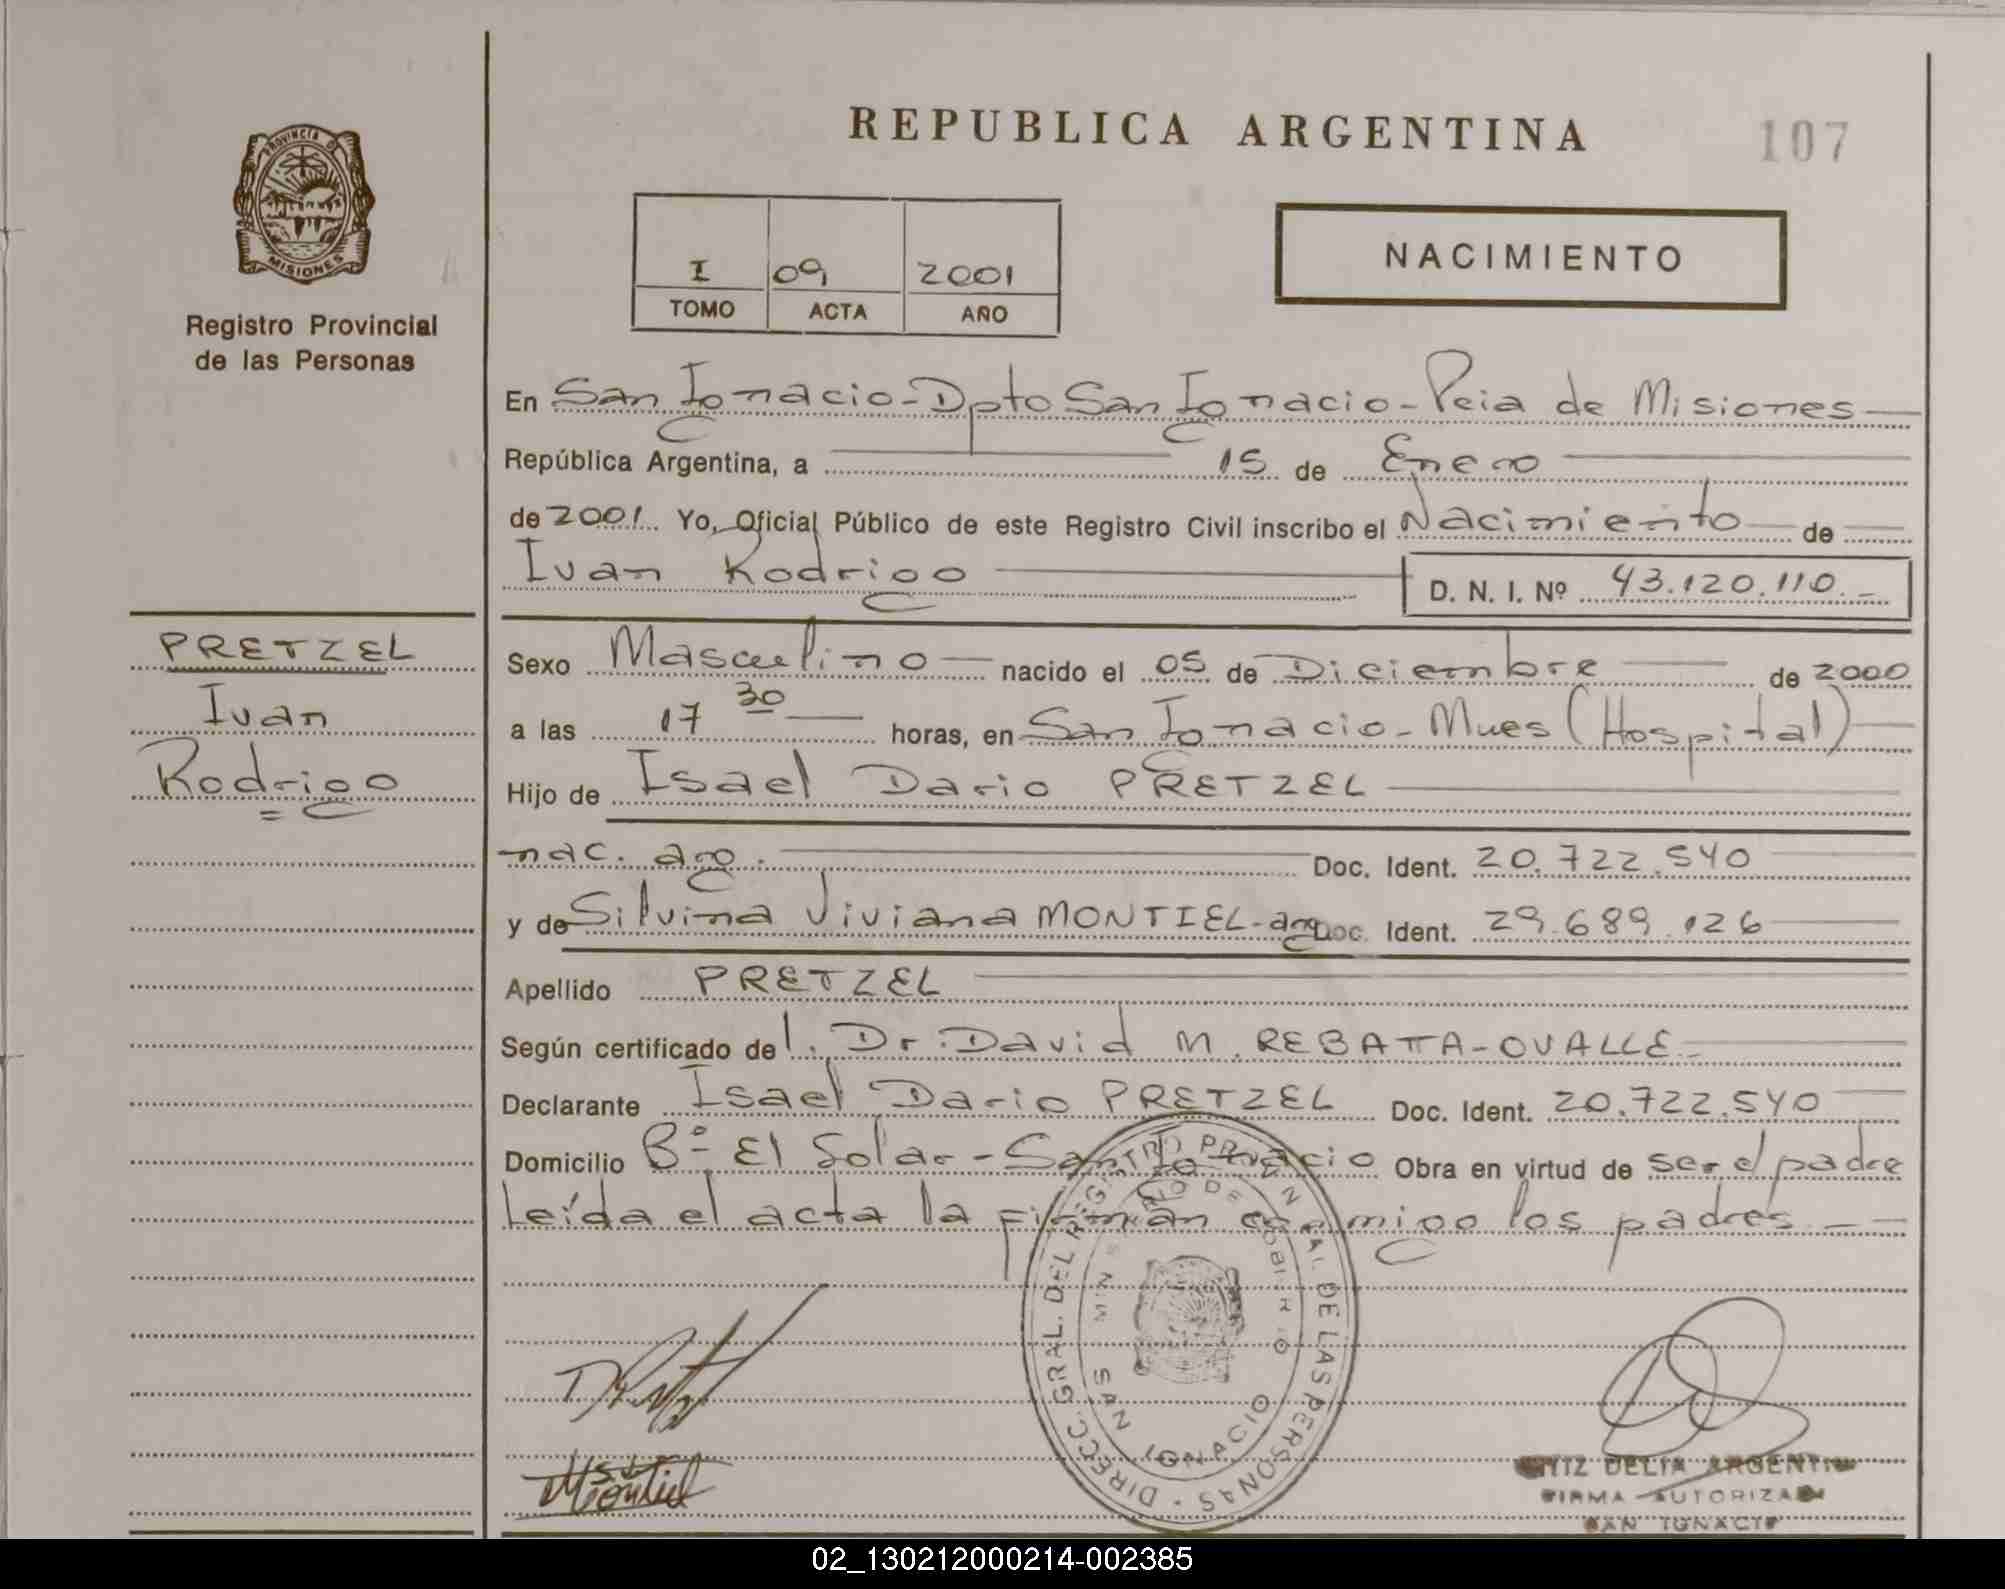 REPUBLICA ARGENTINA
107
PROVINCIA DE
MISIONES
Registro Provincial
de las Personas
I 09 2001
TOMO ACTA AÑO
NACIMIENTO
En San Ignacio - Dpto San Ignacio - Pcia de Misiones
República Argentina, a 15 de Enero
de 2001 Yo, Oficial Público de este Registro Civil inscribo el Nacimiento de
Ivan Rodrigo
D. N. I. Nº 43.120.110.-
PRETZEL
Ivan
Rodrigo
Sexo Masculino nacido el 05 de Diciembre de 2000
a las 17 30 horas, en San Ignacio - Mnes (Hospital)
Hijo de Isael Dario PRETZEL
nac. arg. Doc. Ident. 20.722.540
y de Silvina Viviana MONTIEL - arg Doc. Ident. 29.689.126
Apellido PRETZEL
Según certificado del. Dr. David M. REBATTA - OVALLE -
Declarante Isael Dario PRETZEL Doc. Ident. 20.722.540
Domicilio Bº El Solar - San Ignacio Obra en virtud de ser el padre
Leída el acta la firman conmigo los padres - -
DIRECC. GRAL. DEL REGISTRO PROVINCIAL DE LAS PERSONAS
SAN IGNACIO
DELIA ARGENTINA
FIRMA AUTORIZADA
SAN IGNACIO
02_130212000214-002385